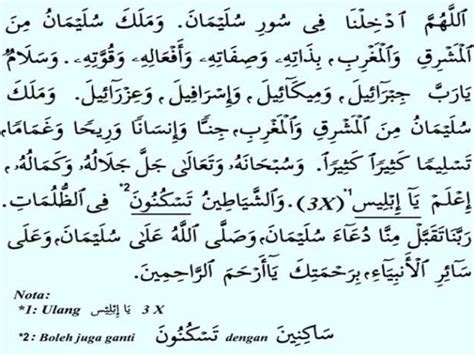 اَللَّهُمَّ ٱدْخِلْنَا فِى سُورِ سُلَيْمَانَ. وَمَلَكَ سُلَيْمَانُ مِنَ
ٱلْمَشْرِقِ وَٱلْمَغْرِبِ، بِذَاتِهِ، وَصِفَاتِهِ، وَأَفْعَالِهِ، وَقُوَّتِهِ. وَسَلَامٌ
يَارَبَّ جِبْرَائِيلَ، وَمِيكَائِيلَ، وَإِسْرَافِيلَ، وَعِزْرَائِيلَ. وَمَلَكَ
سُلَيْمَانُ مِنَ ٱلْمَشْرِقِ وَٱلْمَغْرِبِ، جِنًّا وَإِنْسَانًا وَرِيحًا وَغَمَامًا،
تَسْلِيمًا كَثِيرًا كَثِيرًا. وَسُبْحَانَهُ وَتَعَالَى جَلَّ جَلَالُهُ وَكَمَالُهُ،
إِعْلَمْ يَآ إِبْلِيس*1 (3X). وَٱلشَّيَاطِينُ تَسْكُنُونَ*2 فِى ٱلظُّلُمَاتِ.
رَبَّنَاتَقَبَّلْ مِنَّا دُعَآءَ سُلَيْمَانَ، وَصَلَّى ٱللَّهُ عَلَى سُلَيْمَانَ، وَعَلَى
سَائِرِ ٱلْأَنْبِيَآءِ، بِرَحْمَتِكَ يَآأَرْحَمَ ٱلرَّاحِمِينَ.
Nota:
*1: Ulang يَآ إِبْلِيْس 3 X
*2: Boleh juga ganti تَسْكُنُونَ dengan سَاكِنِينَ